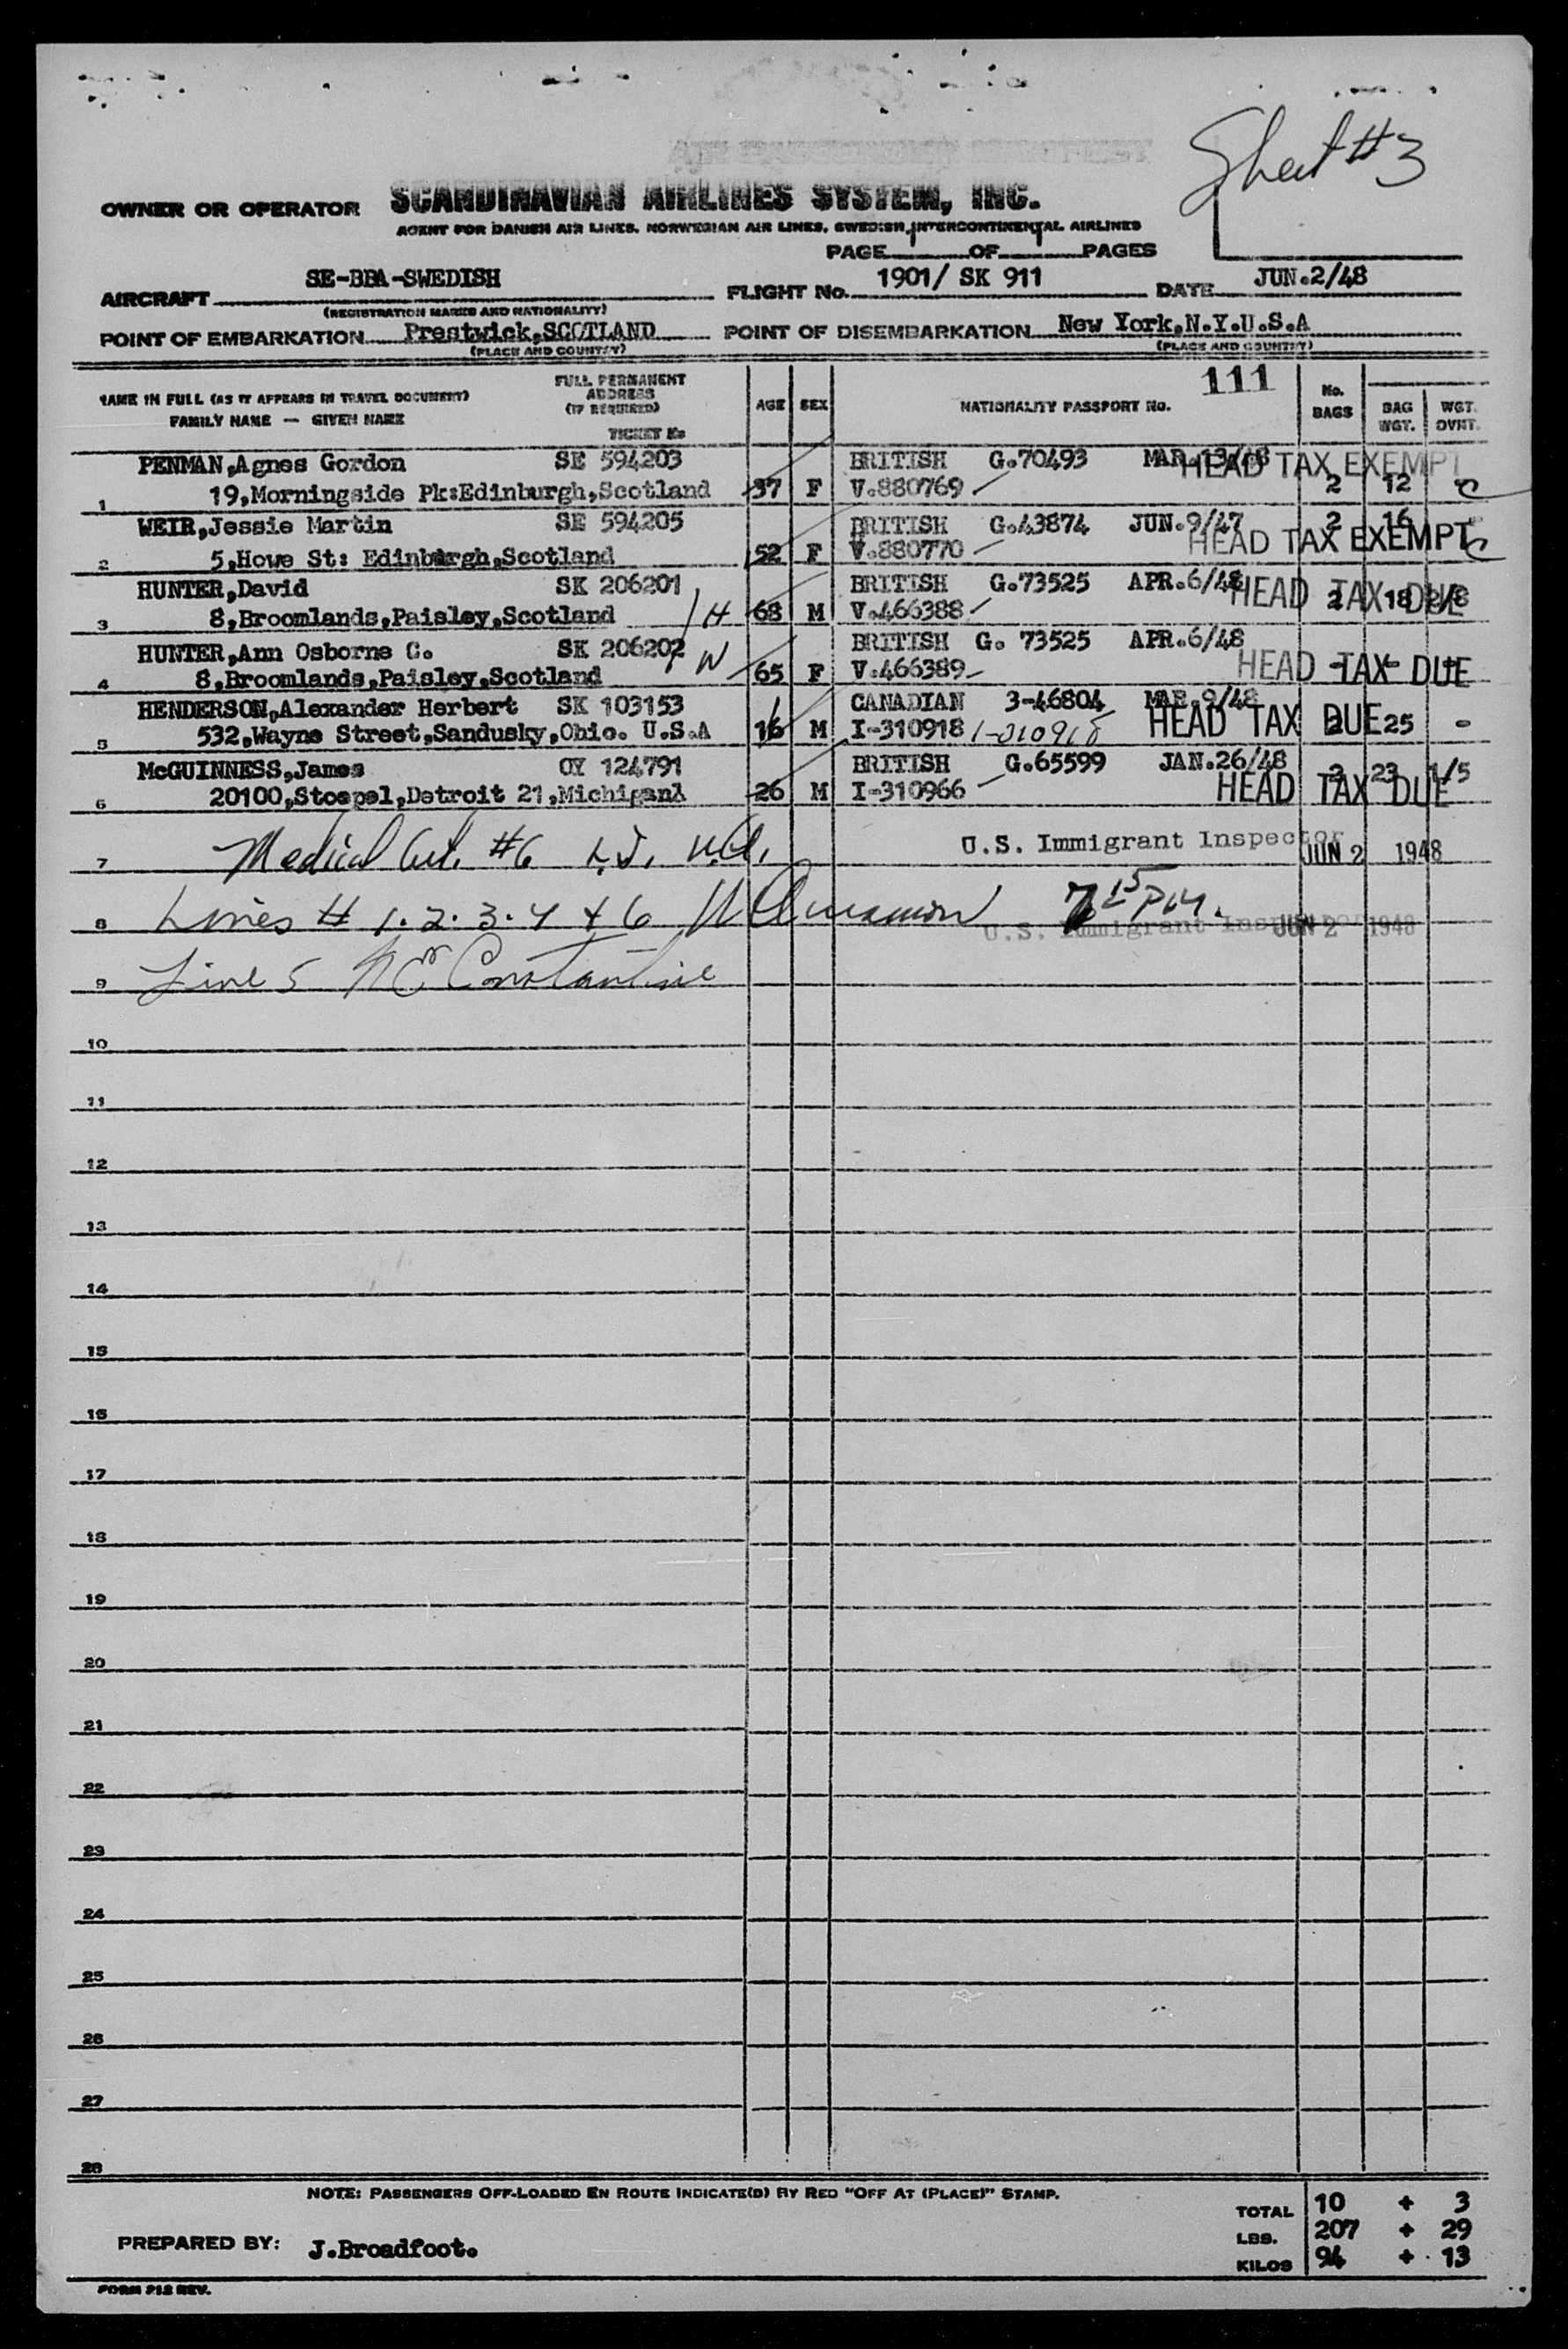 Sheet #3
OWNER OR OPERATOR SCANDINAVIAN AIRLINES SYSTEM, INC.
AGENT FOR DANISH AIR LINES, NORWEGIAN AIR LINES, SWEDISH INTERCONTINENTAL AIRLINES
PAGE 1 OF 1 PAGES
AIRCRAFT SE-BBA-SWEDISH FLIGHT No. 1901/ SK 911 DATE JUN.2/48
(REGISTRATION MARKS AND NATIONALITY)
POINT OF EMBARKATION Prestwick,SCOTLAND POINT OF DISEMBARKATION New York,N.Y.U.S.A
(PLACE AND COUNTRY) (PLACE AND COUNTRY)
NAME IN FULL (AS IT APPEARS IN TRAVEL DOCUMENT) FULL PERMANENT ADDRESS (IF REQUIRED) AGE SEX NATIONALITY PASSPORT No. 111 No. BAGS BAG WGT. WGT. OVHT.
FAMILY NAME — GIVEN NAME TICKET No
PENMAN,Agnes Gordon SE 594203 BRITISH G.70493 MAR.13/48 HEAD TAX EXEMPT
1 19,Morningside Pk:Edinburgh,Scotland 37 F V.880769 2 12
WEIR,Jessie Martin SE 594205 BRITISH G.43874 JUN.9/47 2 16
2 5,Howe St: Edinburgh,Scotland 52 F V.880770 HEAD TAX EXEMPT
HUNTER,David SK 206201 BRITISH G.73525 APR.6/48 HEAD TAX DUE
3 8,Broomlands,Paisley,Scotland H 68 M V.466388 2 18
HUNTER,Ann Osborne C. SK 206202 BRITISH G. 73525 APR.6/48
4 8,Broomlands,Paisley,Scotland W 65 F V.466389 HEAD TAX DUE
HENDERSON,Alexander Herbert SK 103153 CANADIAN 3-46804 MAR.9/48
5 532,Wayne Street,Sandusky,Ohio. U.S.A 16 M I-310918 1-310918 HEAD TAX DUE 2 25 -
McGUINNESS,James OY 124791 BRITISH G.65599 JAN.26/48 2 23 1/5
6 20100,Stoepel,Detroit 21,Michigan 26 M I-310966 HEAD TAX DUE
7 Medical #6 U.S. Immigrant Inspector JUN 2 1948
8 Lines # 1.2.3.4 + 6 7 15 PM. U.S. Immigrant Inspector JUN 2 1948
9 Line 5 Constantine
10
11
12
13
14
15
16
17
18
19
20
21
22
23
24
25
26
27
28
NOTE: PASSENGERS OFF-LOADED EN ROUTE INDICATE(D) BY RED "OFF AT (PLACE)" STAMP.
TOTAL 10 + 3
LBS. 207 + 29
PREPARED BY: J.Broadfoot.
KILOS 94 + 13
FORM 212 REV.